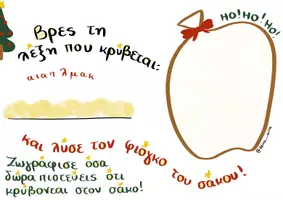 Βρες τη
λέξη που κρύβεται:
αιαπλμακ
HO! HO! HO!
και λύσε τον φιόγκο του σάκου!
Ζωγράφισε όσα
δώρα πιστεύεις ότι
κρύβονται στον σάκο!